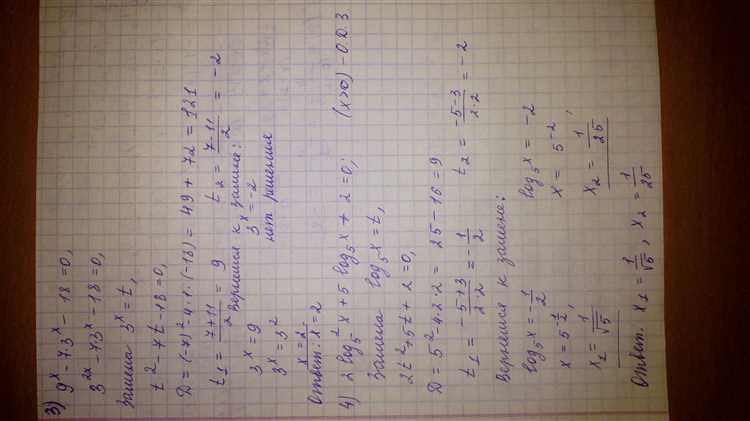 3) 9^x - 7·3^x - 18 = 0;
3^2x - 7·3^x - 18 = 0;
Замена 3^x = t;
t² - 7t - 18 = 0;
D = (-7)² - 4·1·(-18) = 49 + 72 = 121
t₁ = (7+11)/2 = 9 t₂ = (7-11)/2 = -2
Вернемся к замене:
3^x = 9 3^x = -2
3^x = 3² нет решения
x = 2
Ответ: x = 2
4) 2 log₅²x + 5 log₅x + 2 = 0; (x>0) - О.Д.З
Замена log₅x = t;
2t² + 5t + 2 = 0;
D = 5² - 4·2·2 = 25 - 16 = 9
t₁ = (-5+3)/(2·2) = -1/2 t₂ = (-5-3)/(2·2) = -2
Вернемся к замене:
log₅x = -1/2 log₅x = -2
x = 5^(-1/2); x = 5^-2;
x₁ = 1/√5 x₂ = 1/25
Ответ: x₁ = 1/√5; x₂ = 1/25